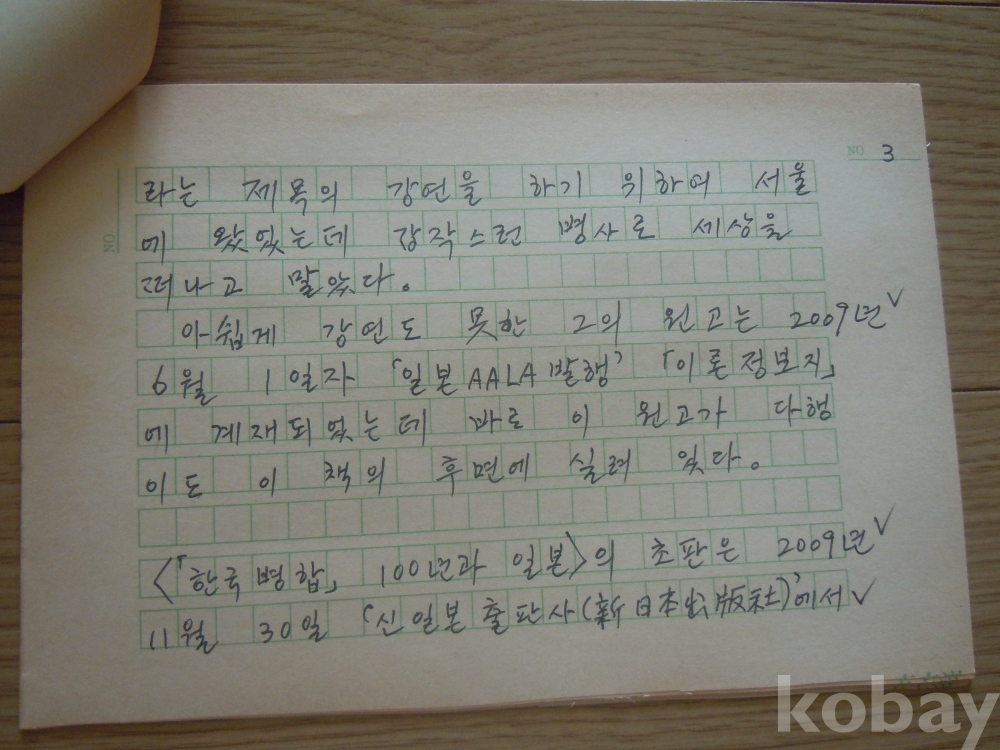 NO. 3
라는 제목의 강연을 하기 위하여 서울
에 왔었는데 갑작스런 병사로 세상을
떠나고 말았다.
아쉽게 강연도 못한 그의 원고는 2009년✓
6월 1일자 「일본AALA발행' 「이론정보지」
에 계재되었는데 바로 이 원고가 다행
이도 이 책의 후면에 실려 있다.
〈「한국병합」 100년과 일본〉의 초판은 2009년✓
11월 30일 '신일본출판사(新日本出版社)'에서✓
NO.
kobay